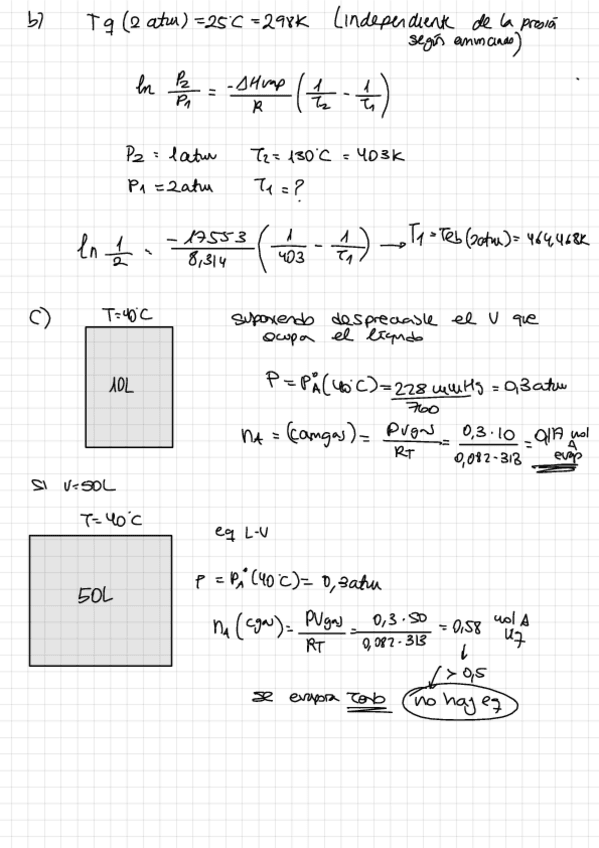 b) Tq (2 atm) = 25°C = 298K (independient de la presió
según enunciado)
ln P2/P1 = -ΔHvap/R (1/T2 - 1/T1)
P2 = 1atm T2 = 130°C = 403K
P1 = 2atm T1 = ?
ln 1/2 = -17553/8,314 (1/403 - 1/T1) → T1 = Teb (2atm) = 464,468K
c) T=40°C suponiendo despreciable el V que
ocupa el líquido
10L P = P°A (40°C) = 228 mmHg/760 = 0,3 atm
nA = (camgas) = PVgas/RT = 0,3·10/0,082·313 = 0,117 mol A
evap
Si V=50L
T=40°C eq L-V
50L P = P°A (40°C) = 0,3 atm
nA (cgas) = PVgas/RT = 0,3·50/0,082·313 = 0,58 mol A
↓
> 0,5
se evapora no hay eq